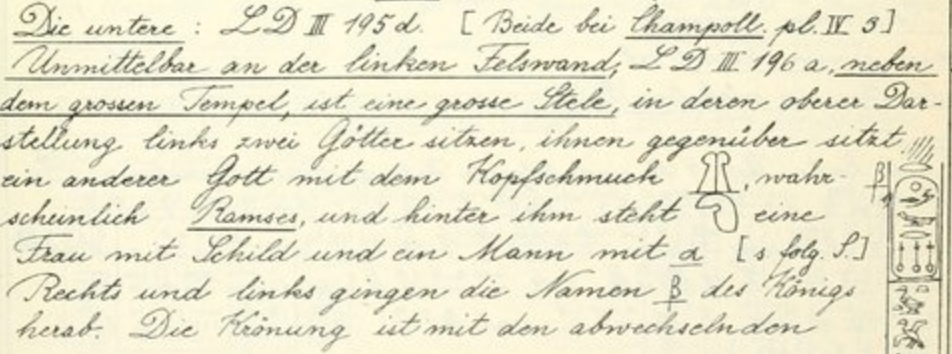 Die untere : L D III 195 d. [ Beide bei Champoll. pl. IV 3 ]
Unmittelbar an der linken Felswand, L D III 196 a, neben
dem grossen Tempel, ist eine grosse Stele, in deren oberer Dar-
stellung links zwei Götter sitzen, ihnen gegenüber sitzt
ein anderer Gott mit dem Kopfschmuck , wahr- β
scheinlich Ramses, und hinter ihm steht eine
Frau mit Schild und ein Mann mit α [ s folg. S. ]
Rechts und links gingen die Namen β des Königs
herab. Die Krönung ist mit den abwechselnden